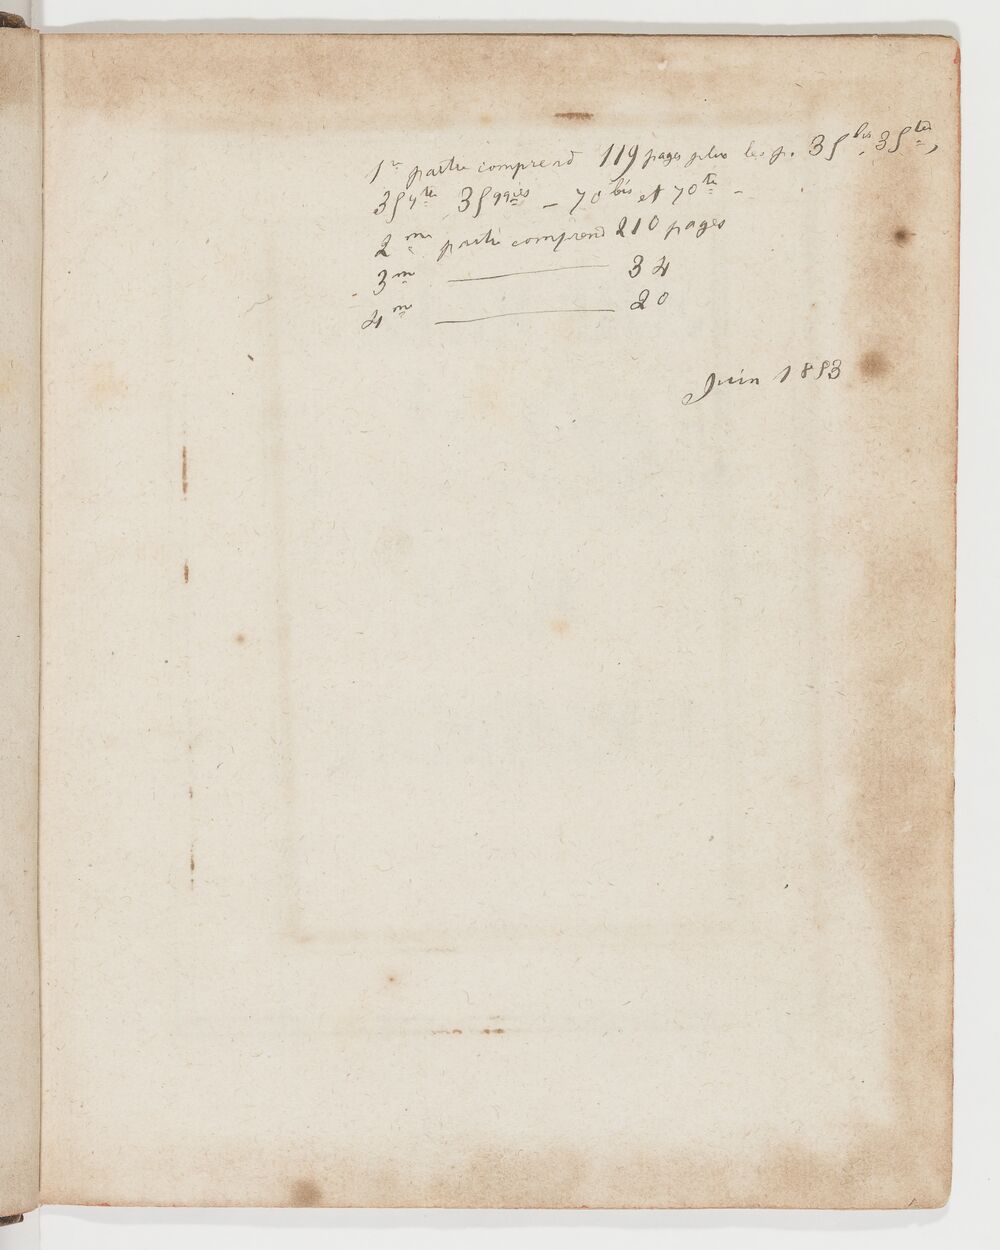 1re partie comprend 119 pages plus les p. 35bis, 35ter,
35qter 35qqies – 70bis et 70ter –
2me partie comprend 210 pages
3me ——— 34
4me ——— 20
Juin 1883